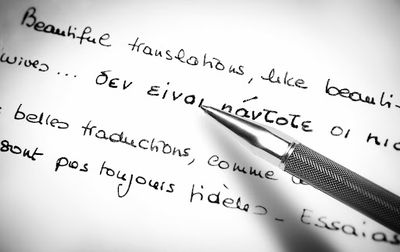 Beautiful translations, like beauti-
wives... δεν είναι πάντοτε οι πισ
belles traductions, comme
sont pas toujours fidèles - Essaias